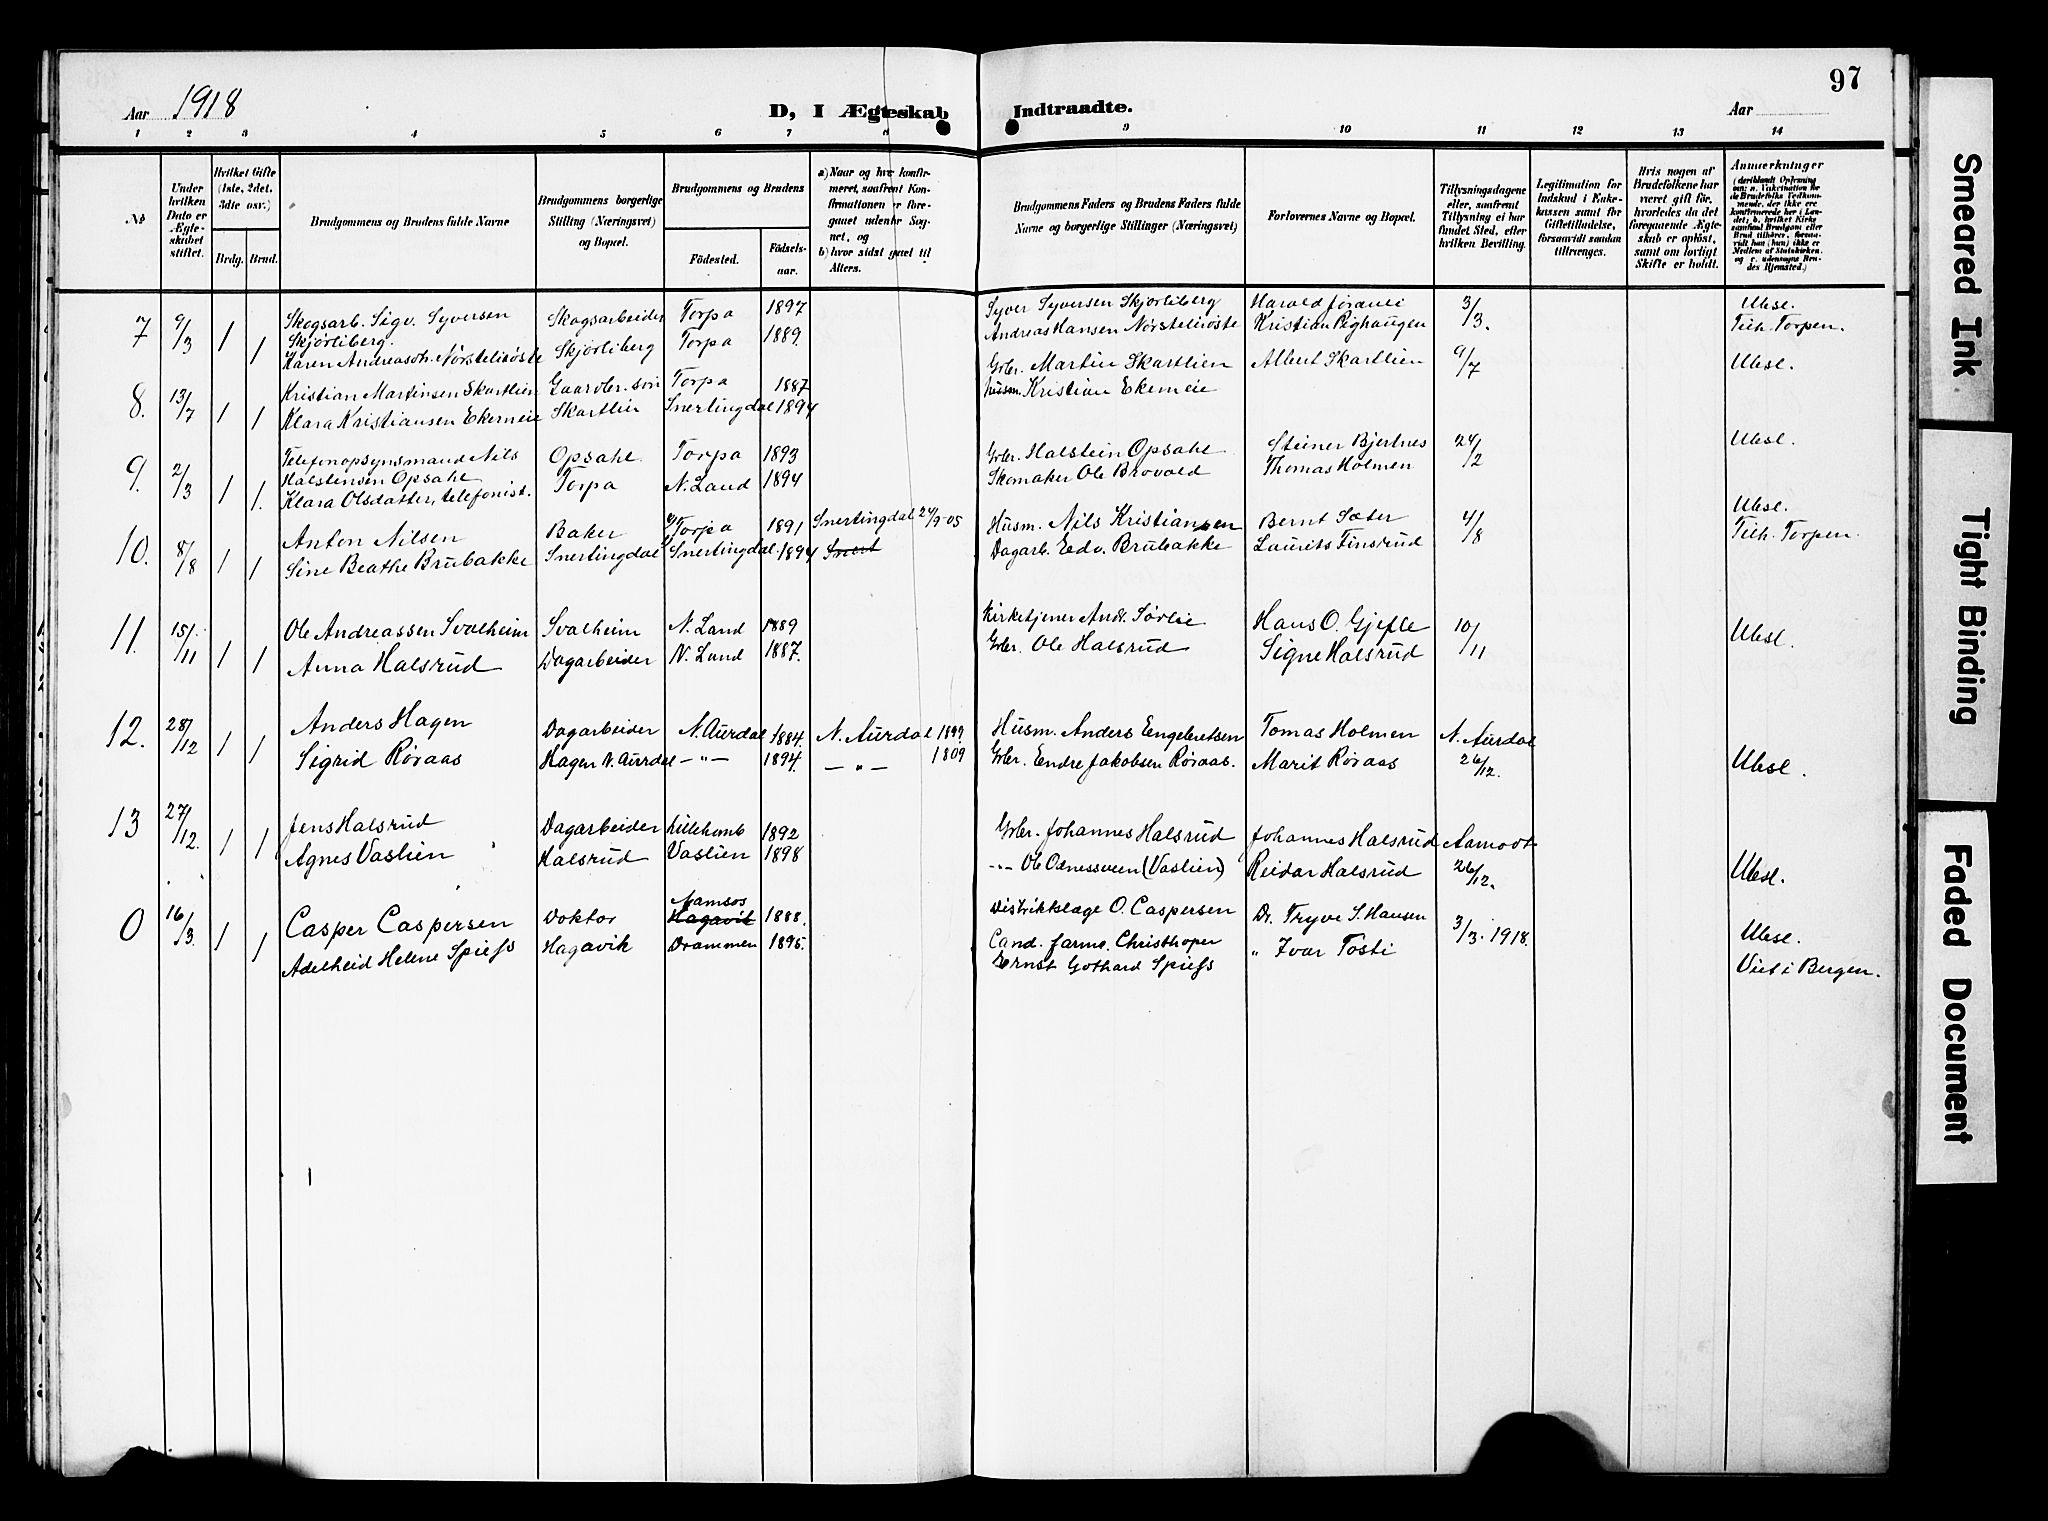 97
Aar 1918 D, I Ægteskab Indtraadte. Aar
1 2 3 4 5 6 7 8 9 10 11 12 13 14
№
Under hvilken Dato er Ægteskabet stiftet.
Hvilket Gifte (1ste, 2det, 3die osv.)
Brdg. Brud.
Brudgommens og Brudens fulde Navne
Brudgommens borgerlige Stilling (Næringsvei) og Bopæl.
Brudgommens og Brudens
Födested. Födselsaar.
a) Naar og hvor konfirmeret, saafremt Konfirmationen er foregaaet udenfor Sognet, og
b) hvor sidst gaaet til Alters.
Brudgommens Faders og Brudens Faders fulde Navne og borgerlige Stillinger (Næringsvei)
Forlovernes Navne og Bopæl.
Tillysningsdagene eller, saafremt Tillysning ei har fundet Sted, efter hvilken Bevilling.
Legitimation for Indskud i Enkekassen samt for Giftetilladelse, forsaavidt saadan tiltrænges.
Hvis nogen af Brudefolkene har været gift før, hvorledes da det foregaaende Ægteskab er opløst, samt om lovligt Skifte er holdt.
Anmærkninger
7 9/3 1 1
Skogsarb. Sigv. Syversen Skogsarbeider Torpa 1897 Syver Syversen Skjørliberg 3/3. Ubesl.
Skjørliberg. Skjørliberg Torpa 1889 Andreas Hansen Nørstelirøste Kristian Righaugen Tilh. Torpen.
Karen Andreasdh. Nørstelirøste
8. 13/7 1 1
Kristian Martinsen Skartlien Gaardbr. søn Torpa 1887 Grbr. Martin Skartlien Albert Skartlien 9/7 Ubesl.
Klara Kristiansen Ekerneie Skartlien Snertingdal 1894 Husm. Kristian Ekerneie
9. 2/3 1 1.
Telefonopsynsmand Nils Opsahl Torpa 1893 Grbr. Halstein Opsahl Steiner Bjertnes 24/2 Ubesl.
Halstensen Opsahl Torpa N. Land 1894 Skomaker Ole Brovold Thomas Holmen
Klara Olsdatter, telefonist.
10. 8/8 1 1
Anton Nilsen Baker Torpa 1891 Snertingdal 24/9-05 Husm. Nils Kristiansen Bernt Sæter 4/8 Ubesl.
Sine Beathe Brubakke Snertingdal Snertingdal 1894 Snert Dagarb. Edv. Brubakke Laurits Finsrud Tilh. Torpen.
11. 15/11 1 1
Ole Andreassen Svalheim Svalheim N. Land 1889 Kirketjener Andr. Sørlie Hans O. Gjefle 10/11 Ubesl.
Anna Halsrud Dagarbeider N. Land 1887. Grbr. Ole Halsrud Signe Halsrud
12. 28/12 1 1
Anders Hagen Dagarbeider N. Aurdal 1884. N. Aurdal 1899 Husm. Anders Engebretsen Tomas Holmen N. Aurdal
Sigrid Røraas Hagen N. Aurdal —"— 1894. —"— 1809 Grbr. Endre Jakobsen Røraas. Marit Røraas 26/12. Ubesl.
13 27/12. 1 1
Jens Halsrud Dagarbeider Lillehamb 1892 Grbr. Johannes Halsrud Johannes Halsrud Aamodt
Agnes Vaslien Halsrud Vaslien 1898 -"- Ole Odnessveen (Vaslien) Reidar Halsrud 26/12. Ubesl.
0 16/3. 1 1
Namsos
Casper Caspersen Doktor Hagavik 1888. Distriktslæge O. Caspersen Dr. Tryve S. Hansen 3/3. 1918. Ubesl.
Adelheid Helene Spiess Hagavik Drammen 1895. Cand. farm. Christhoper " Ivar Tosti
Ernst Gothard Spiess Viet i Bergen.
Smeared Ink
Tight Binding
Faded Document